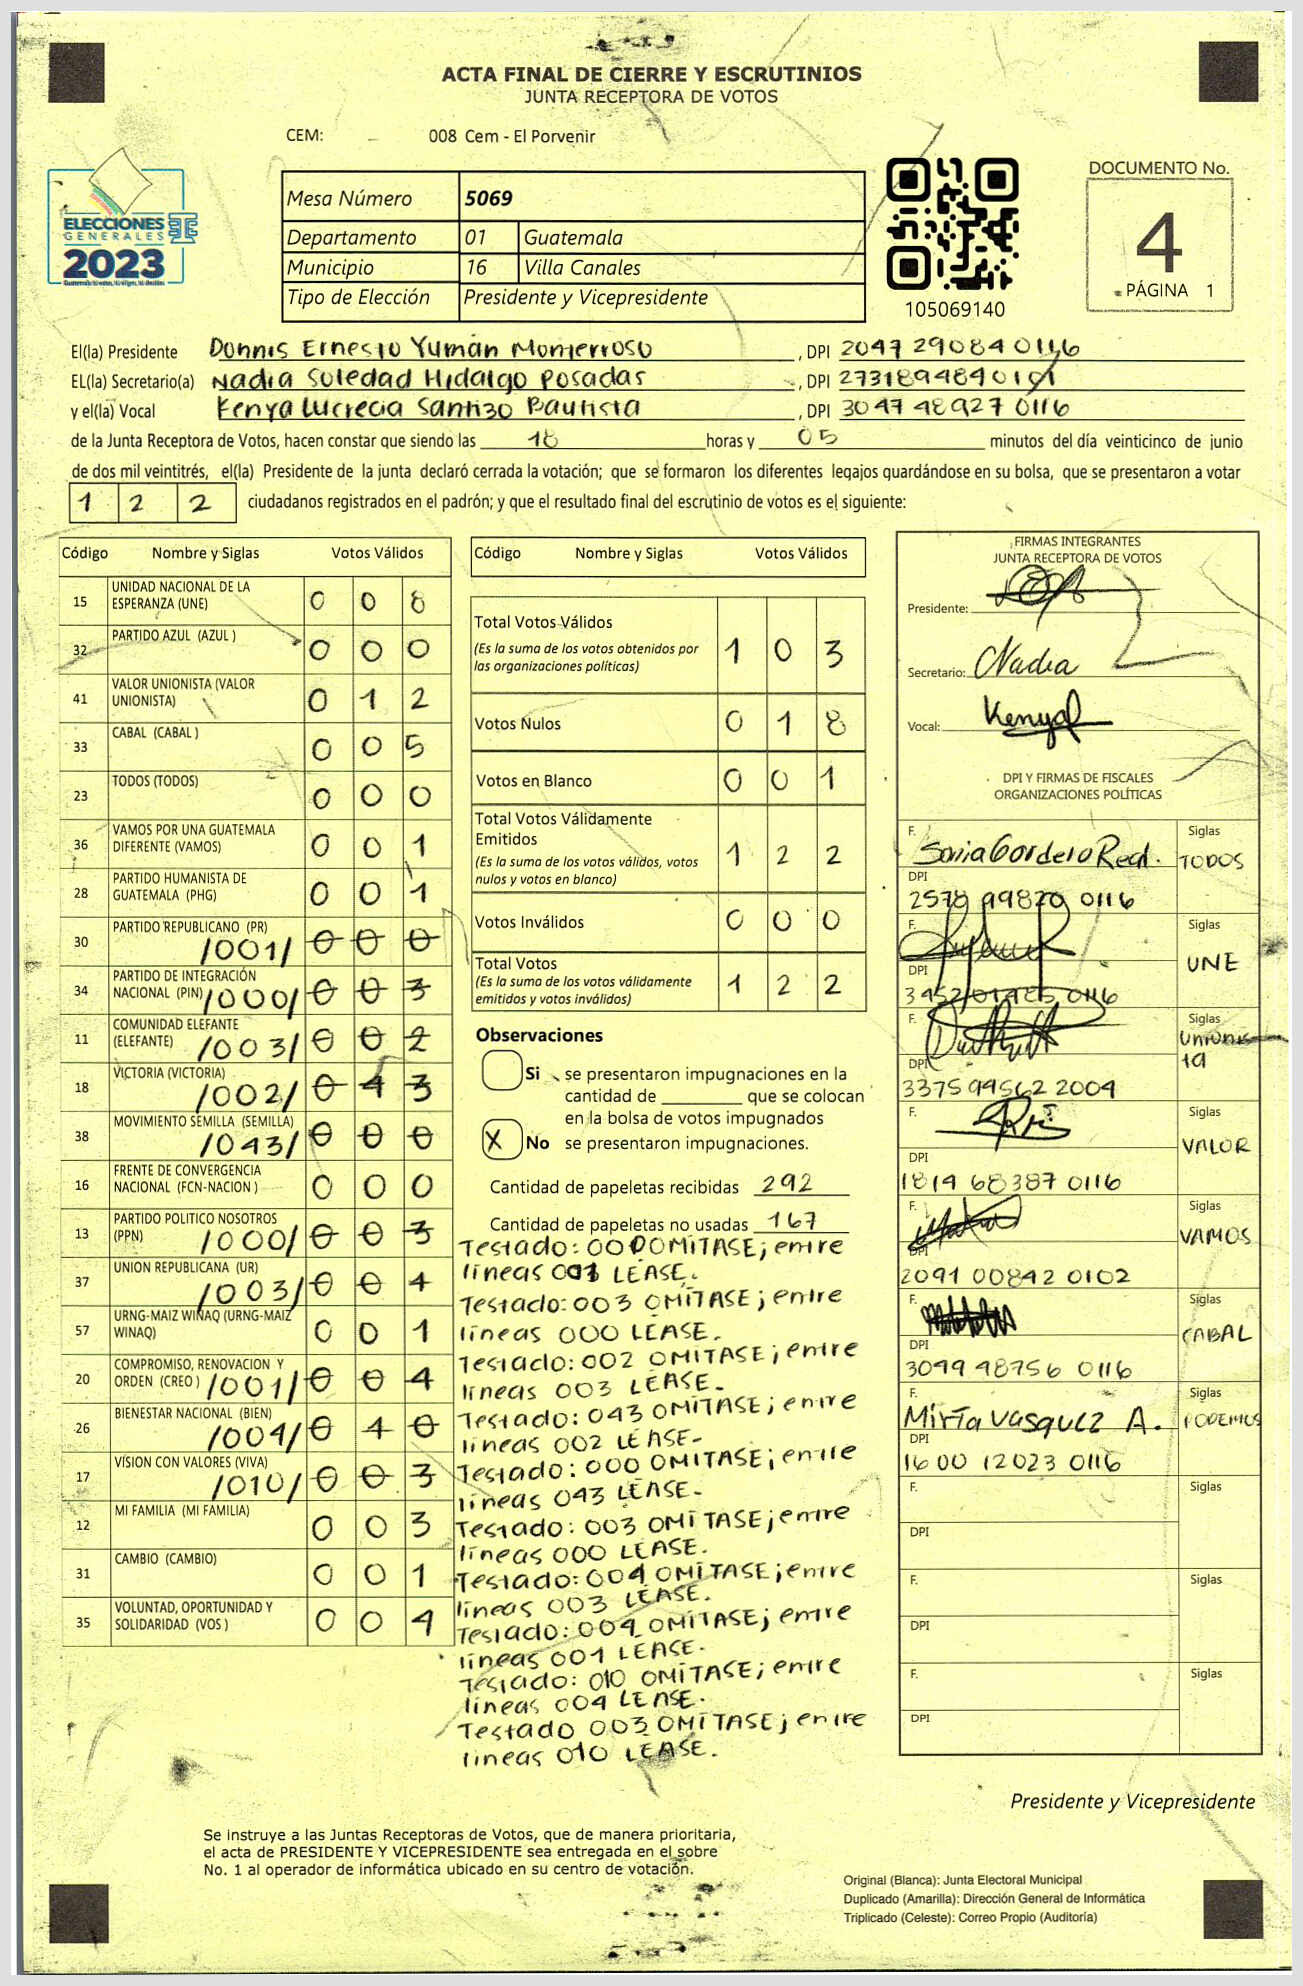 ACTA FINAL DE CIERRE Y ESCRUTINIOS
JUNTA RECEPTORA DE VOTOS
CEM: 008 Cem - El Porvenir
ELECCIONES
GENERALES
2023
Mesa Número 5069
Departamento 01 Guatemala
Municipio 16 Villa Canales
Tipo de Elección Presidente y Vicepresidente
105069140
DOCUMENTO No.
4
PÁGINA 1
El(la) Presidente Donnis Ernesto Yumán Monterroso , DPI 2047 29084 0116
EL(la) Secretario(a) Nadia Soledad Hidalgo Posadas , DPI 273189484 0101
y el(la) Vocal Kenya Lucrecia Santizo Bautista , DPI 3047 48927 0116
de la Junta Receptora de Votos, hacen constar que siendo las 18 horas y 05 minutos del día veinticinco de junio
de dos mil veintitrés, el(la) Presidente de la junta declaró cerrada la votación; que se formaron los diferentes legajos guardándose en su bolsa, que se presentaron a votar
1 2 2 ciudadanos registrados en el padrón; y que el resultado final del escrutinio de votos es el siguiente:
Código Nombre y Siglas Votos Válidos
15 UNIDAD NACIONAL DE LA ESPERANZA (UNE) 0 0 8
32 PARTIDO AZUL (AZUL ) 0 0 0
41 VALOR UNIONISTA (VALOR UNIONISTA) 0 1 2
33 CABAL (CABAL ) 0 0 5
23 TODOS (TODOS) 0 0 0
36 VAMOS POR UNA GUATEMALA DIFERENTE (VAMOS) 0 0 1
28 PARTIDO HUMANISTA DE GUATEMALA (PHG) 0 0 1
30 PARTIDO REPUBLICANO (PR) /001/ 0 0 0
34 PARTIDO DE INTEGRACIÓN NACIONAL (PIN) /000/ 0 0 3
11 COMUNIDAD ELEFANTE (ELEFANTE) /003/ 0 0 2
18 VICTORIA (VICTORIA) /002/ 0 4 3
38 MOVIMIENTO SEMILLA (SEMILLA) /043/ 0 0 0
16 FRENTE DE CONVERGENCIA NACIONAL (FCN-NACION ) 0 0 0
13 PARTIDO POLITICO NOSOTROS (PPN) /000/ 0 0 3
37 UNION REPUBLICANA (UR) /003/ 0 0 4
57 URNG-MAIZ WINAQ (URNG-MAIZ WINAQ) 0 0 1
20 COMPROMISO, RENOVACION Y ORDEN (CREO ) /001/ 0 0 4
26 BIENESTAR NACIONAL (BIEN) /004/ 0 4 0
17 VISION CON VALORES (VIVA) /010/ 0 0 3
12 MI FAMILIA (MI FAMILIA) 0 0 3
31 CAMBIO (CAMBIO) 0 0 1
35 VOLUNTAD, OPORTUNIDAD Y SOLIDARIDAD (VOS ) 0 0 4
Código Nombre y Siglas Votos Válidos
Total Votos Válidos 1 0 3
(Es la suma de los votos obtenidos por
las organizaciones políticas)
Votos Nulos 0 1 8
Votos en Blanco 0 0 1
Total Votos Válidamente
Emitidos 1 2 2
(Es la suma de los votos válidos, votos
nulos y votos en blanco)
Votos Inválidos 0 0 0
Total Votos 1 2 2
(Es la suma de los votos válidamente
emitidos y votos inválidos)
Observaciones
Si se presentaron impugnaciones en la
cantidad de ________ que se colocan
en la bolsa de votos impugnados
X No se presentaron impugnaciones.
Cantidad de papeletas recibidas 292
Cantidad de papeletas no usadas 167
Testado: 000 OMITASE; entre
lineas 001 LEASE.
Testado: 003 OMITASE; entre
lineas 000 LEASE.
Testado: 002 OMITASE; entre
lineas 003 LEASE.
Testado: 043 OMITASE; entre
lineas 002 LEASE.
Testado: 000 OMITASE; entre
lineas 043 LEASE.
Testado: 003 OMITASE; entre
lineas 000 LEASE.
Testado: 004 OMITASE; entre
lineas 003 LEASE.
Testado: 004 OMITASE; entre
lineas 001 LEASE.
Testado: 010 OMITASE; entre
lineas 004 LEASE.
Testado 003 OMITASE; entre
lineas 010 LEASE.
FIRMAS INTEGRANTES
JUNTA RECEPTORA DE VOTOS
Presidente:
Secretario: Nadia
Vocal: Kenya
DPI Y FIRMAS DE FISCALES
ORGANIZACIONES POLÍTICAS
F. Sonia Cordero Red. Siglas TODOS
DPI 2578 99820 0116
F. Siglas UNE
DPI 0116
F. Siglas Unionista
DPI 3375 99562 2004
F. Siglas VALOR
DPI 1814 68387 0116
F. Siglas VAMOS
DPI 2091 00842 0102
F. Siglas CABAL
DPI 3099 98756 0116
F. Mirta Vasquez A. Siglas PODEMOS
DPI 1600 12023 0116
F. Siglas
DPI
F. Siglas
DPI
F. Siglas
DPI
Presidente y Vicepresidente
Se instruye a las Juntas Receptoras de Votos, que de manera prioritaria,
el acta de PRESIDENTE Y VICEPRESIDENTE sea entregada en el sobre
No. 1 al operador de informática ubicado en su centro de votación.
Original (Blanca): Junta Electoral Municipal
Duplicado (Amarilla): Dirección General de Informática
Triplicado (Celeste): Correo Propio (Auditoría)